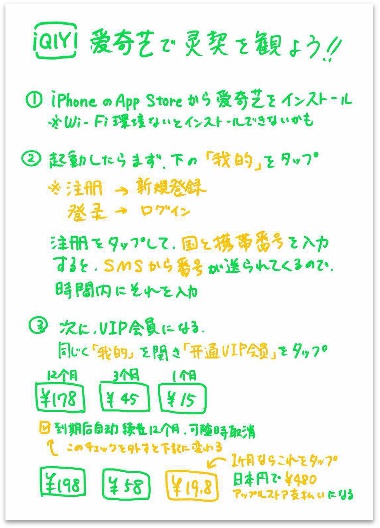 iQIYI 爱奇艺で灵契を観よう!!
① iPhoneのApp Storeから爱奇艺をインストール
※Wi-Fi環境ないとインストールできないかも
② 起動したらまず、下の「我的」をタップ
※注册 → 新規登録
登录 → ログイン
注册をタップして、国と携帯番号を入力
すると、SMSから番号が送られてくるので、
時間内にそれを入力
③ 次に、VIP会員になる。
同じく「我的」を開き「开通VIP会员」をタップ
12个月 3个月 1个月
¥178 ¥45 ¥15
到期后自动续费12个月,可随时取消
このチェックを外すと下記に変わる
1ヶ月ならこれをタップ
¥198 ¥58 ¥19.8 日本円で¥480
アップルストア支払いになる